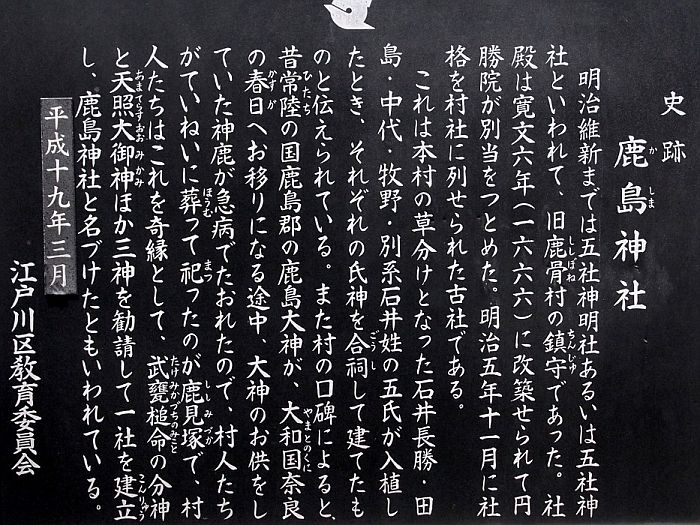 史跡
鹿島神社
明治維新までは五社神明社あるいは五社神
社といわれて、旧鹿骨村の鎮守であった。社
殿は寛文六年(一六六六)に改築せられて円
勝院が別当をつとめた。明治五年十一月に社
格を村社に列せられた古社である。
これは本村の草分けとなった石井長勝・田
島・中代・牧野・別系石井姓の五氏が入植し
たとき、それぞれの氏神を合祠して建てたも
のと伝えられている。また村の口碑によると、
昔常陸の国鹿島郡の鹿島大神が、大和国奈良
の春日へお移りになる途中、大神のお供をし
ていた神鹿が急病でたおれたので、村人たち
がていねいに葬って祀ったのが鹿見塚で、村
人たちはこれを奇縁として、武甕槌命の分神
と天照大御神ほか三神を勧請して一社を建立
し、鹿島神社と名づけたともいわれている。
平成十九年三月
江戸川区教育委員会